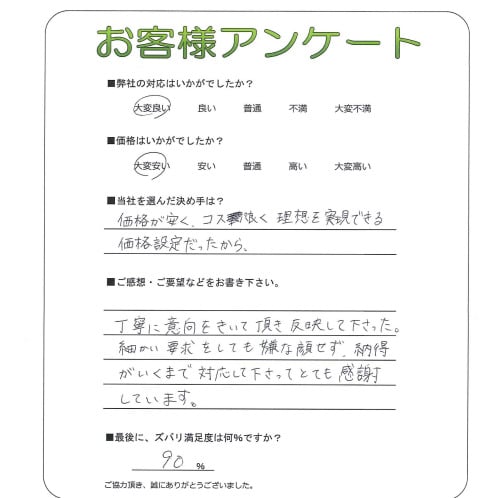 お客様アンケート
■弊社の対応はいかがでしたか？
大変良い 良い 普通 不満 大変不満
■価格はいかがでしたか？
大変安い 安い 普通 高い 大変高い
■当社を選んだ決め手は？
価格が安く、コス 良く 理想を実現できる
価格設定だったから、
■ご感想・ご要望などをお書き下さい。
丁寧に意向をきいて頂き反映して下さった。
細かい要求をしても嫌な顔せず、納得
がいくまで対応して下さってとても感謝
しています。
■最後に、ズバリ満足度は何%ですか？
90 %
ご協力頂き、誠にありがとうございました。